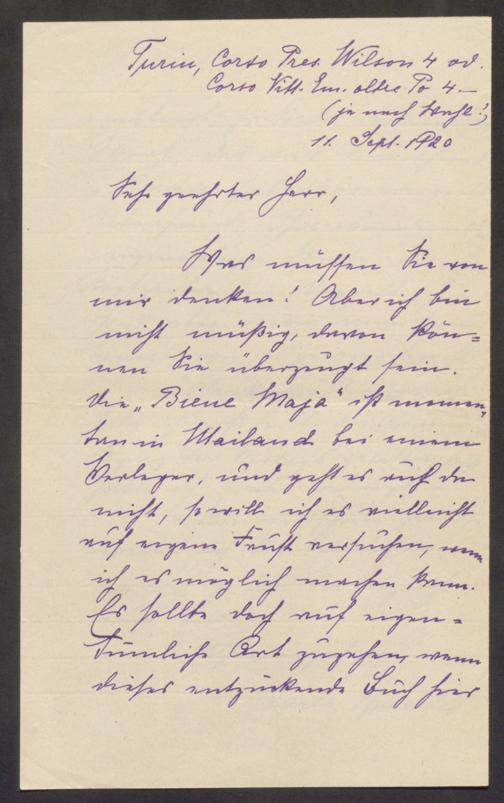 Turin, Corso Pres. Wilson 4 od.
Corso Vitt. Em. oltre Po 4.—
(je nach Wahl!)
11. Sept. 1920
Sehr geehrter Herr,
Was müssen Sie von
mir denken! Aber ich bin
nicht müßig, davon kön=
nen Sie überzeugt sein.
Die „Biene Maja" ist momen=
tan in Mailand bei einem
Verleger, und geht es auch da
nicht, so will ich es vielleicht
auf eigene Faust versuchen, wenn
ich es möglich machen kann.
Es sollte doch auf eigen=
tümliche Art zugehen, wenn
dieses entzückende Buch hier